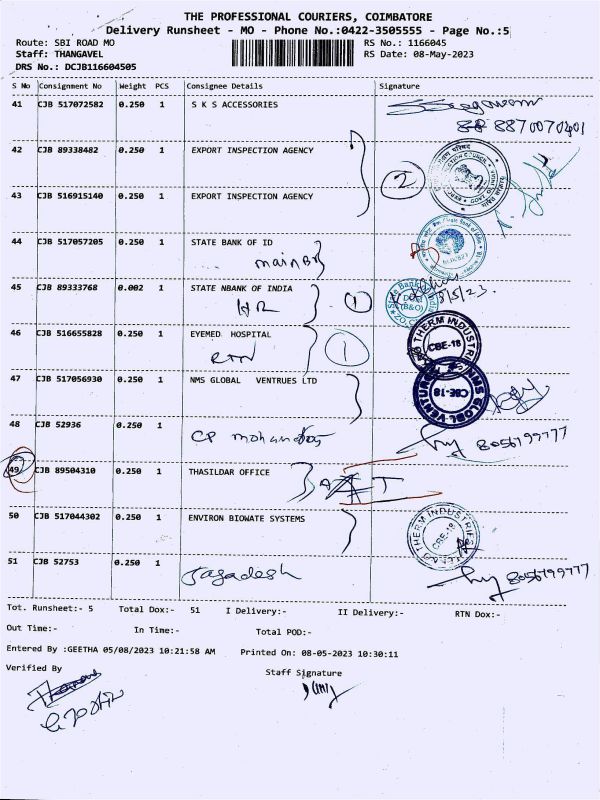 THE PROFESSIONAL COURIERS, COIMBATORE
Delivery Runsheet - MO - Phone No.:0422-3505555 - Page No.:5
Route: SBI ROAD MO RS No.: 1166045
Staff: THANGAVEL RS Date: 08-May-2023
DRS No.: DCJB116604505
S No Consignment No Weight PCS Consignee Details Signature
41 CJB 517072582 0.250 1 S K S ACCESSORIES
8870070401
42 CJB 89338482 0.250 1 EXPORT INSPECTION AGENCY
2
43 CJB 516915140 0.250 1 EXPORT INSPECTION AGENCY
44 CJB 517057205 0.250 1 STATE BANK OF ID
main Br
45 CJB 89333768 0.002 1 STATE NBANK OF INDIA
HR 1 8/5/23.
46 CJB 516655828 0.250 1 EYEMED HOSPITAL
RTN 1
THERM INDUSTRIES
CBE-18
47 CJB 517056930 0.250 1 NMS GLOBAL VENTRUES LTD
NMS GLOBAL VENTURE
CBE-18
48 CJB 52936 0.250 1
CP 8056199777
49 CJB 89504310 0.250 1 THASILDAR OFFICE
50 CJB 517044302 0.250 1 ENVIRON BIOWATE SYSTEMS
THERM INDUSTRIES
CBE-18
51 CJB 52753 0.250 1
Jagadesh 8056199777
Tot. Runsheet:- 5 Total Dox:- 51 I Delivery:- II Delivery:- RTN Dox:-
Out Time:- In Time:- Total POD:-
Entered By :GEETHA 05/08/2023 10:21:58 AM Printed On: 08-05-2023 10:30:11
Verified By Staff Signature